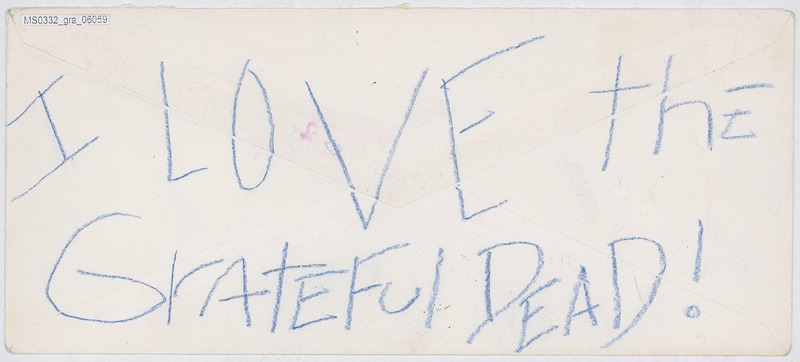 MS0332_gra_06059
I LOVE the
GrATEFul DEAD!